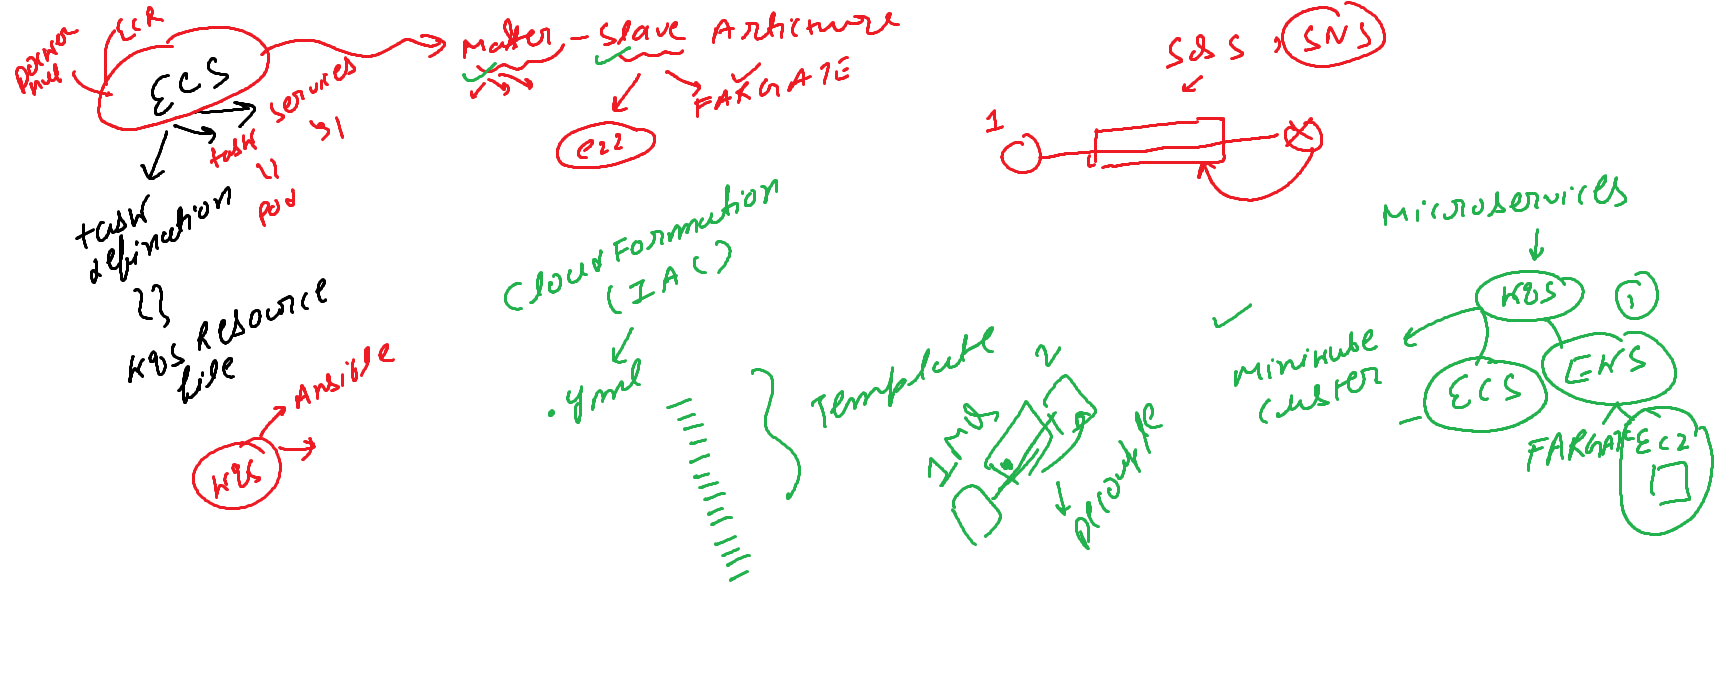 ECR
Docker
Hub
ECS
services
task
pod
task
defination
K8S Resource
file
Master - Slave Articture
FARGATE
ec2
SQS , SNS
1
Cloud Formation
(IAC)
.yml
Template
K8S
Ansible
2
decouple
Microservices
K8S
1
Minikube
Cluster
ECS
EKS
FARGATE
EC2